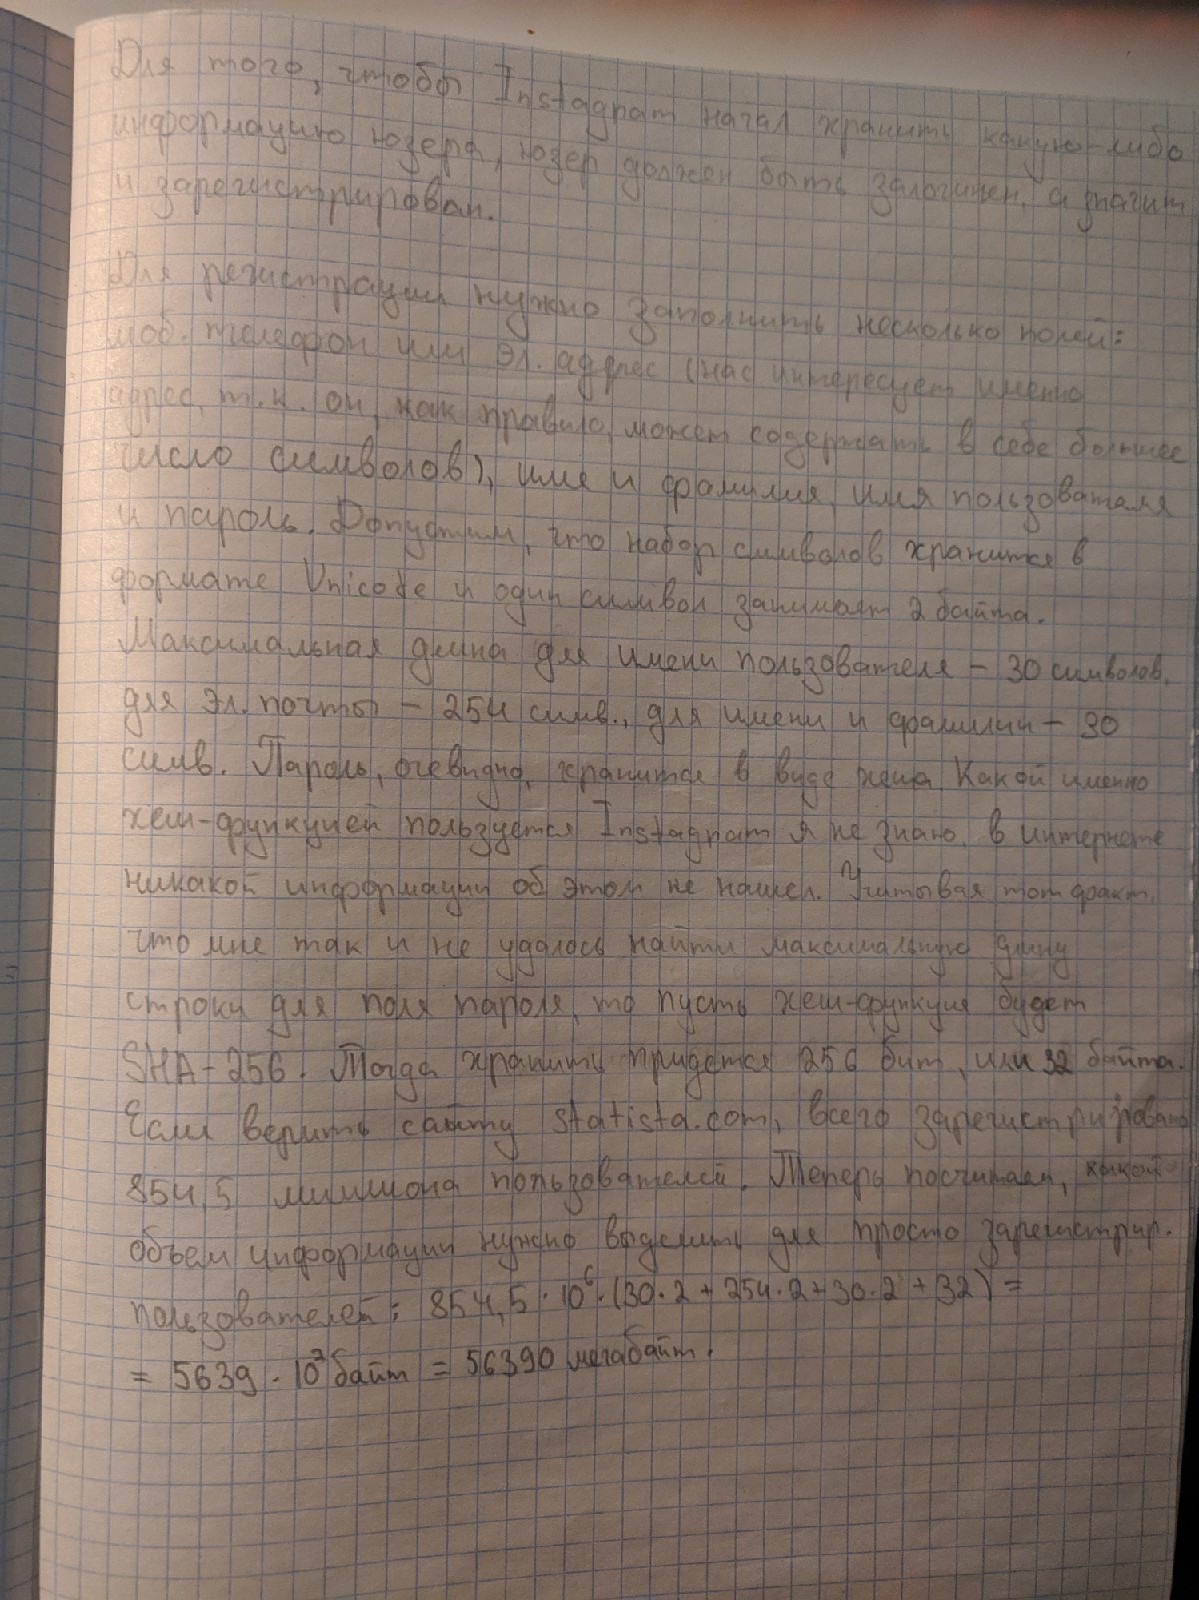 Для того, чтобы Instagram начал хранить какую-либо
информацию юзера, юзер должен быть залогинен, а значит
и зарегистрирован.
Для регистрации нужно заполнить несколько полей:
моб. телефон или эл. аддрес (нас интересует именно
адрес, т.к. он, как правило, может содержать в себе большее
число символов), имя и фамилия, имя пользователя
и пароль. Допустим, что набор символов хранится в
формате Unicode и один символ занимает 2 байта.
Максимальная длина для имени пользователя – 30 символов,
для эл. почты – 254 симв., для имени и фамилии – 30
симв. Пароль, очевидно, хранится в виде хеша. Какой именно
хеш-функцией пользуется Instagram я не знаю, в интернете
никакой информации об этом не нашел. Учитывая тот факт,
что мне так и не удалось найти максимальную длину
строки для поля пароля, то пусть хеш-функция будет
SHA-256. Тогда хранить придется 256 бит, или 32 байта.
Если верить сайту statista.com, всего зарегистрировано
854,5 миллиона пользователей. Теперь посчитаем, какой
объем информации нужно выделить для просто зарегистрир.
пользователей: 854,5 · 10⁶ · (30·2 + 254·2 + 30·2 + 32) =
= 5639 · 10⁷ байт = 56390 мегабайт.